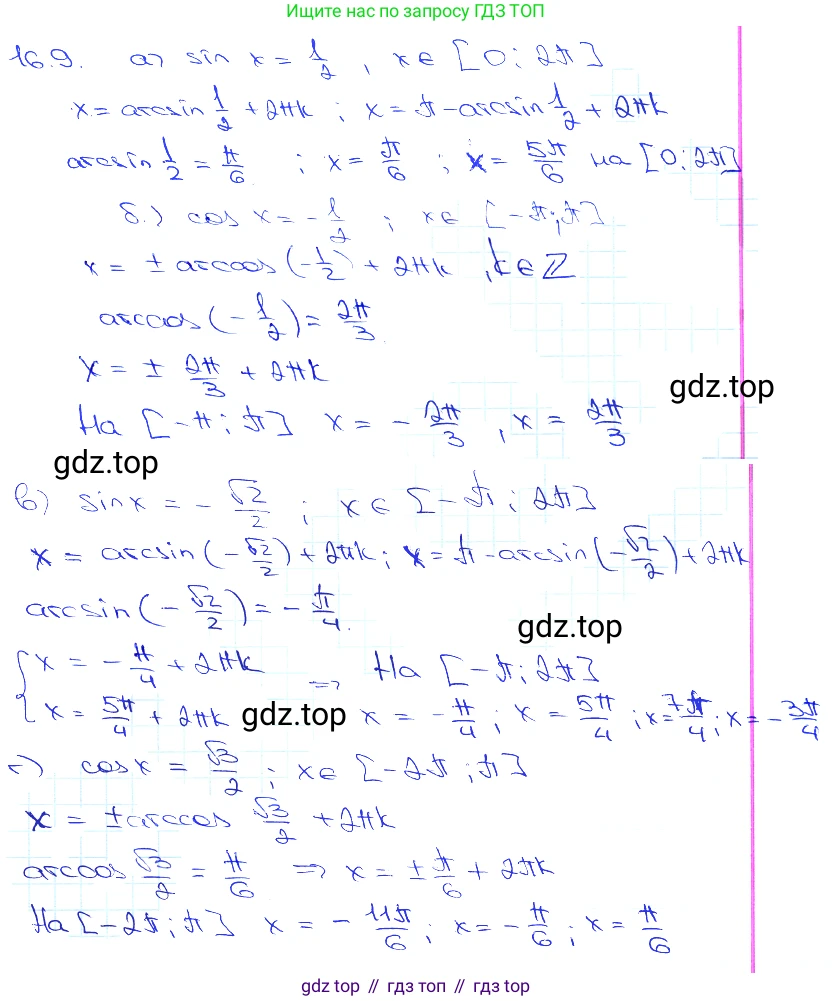 Ищите нас по запросу ГДЗ ТОП
16.9. а) sin x = 1/2 , x ∈ [0; 2π]
x = arcsin 1/2 + 2πk ; x = π - arcsin 1/2 + 2πk
arcsin 1/2 = π/6 ; x = π/6 ; x = 5π/6 на [0; 2π]
б.) cos x = - 1/2 ; x ∈ [-π; π]
x = ± arccos (-1/2) + 2πk , k ∈ ℤ
arccos (- 1/2) = 2π/3.
x = ± 2π/3 + 2πk
gdz.top
На [-π; π] x = - 2π/3 , x = 2π/3
gdz.top
в) sin x = - √2/2 ; x ∈ [-π; 2π]
x = arcsin (-√2/2) + 2πk ; x = π - arcsin (-√2/2) + 2πk
arcsin (- √2/2) = - π/4.
gdz.top
{ x = - π/4 + 2πk ⇒ На [-π; 2π]
x = 5π/4 + 2πk gdz.top x = - π/4 ; x = 5π/4 ; x = 7π/4 ; x = - 3π/4
г) cos x = √3/2 ; x ∈ [-2π; π]
x = ± arccos √3/2 + 2πk
arccos √3/2 = π/6 ⇒ x = ± π/6 + 2πk
На [-2π; π] x = - 11π/6 ; x = - π/6 ; x = π/6
gdz.top // гдз топ // gdz.top